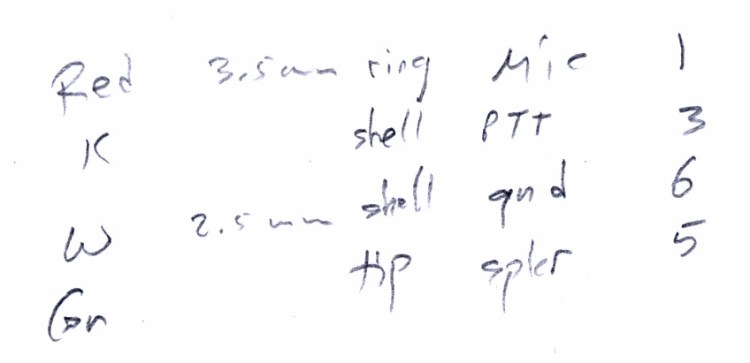 Red 3.5mm ring Mic 1
K shell PTT 3
W 2.5mm shell gnd 6
Grn tip spkr 5